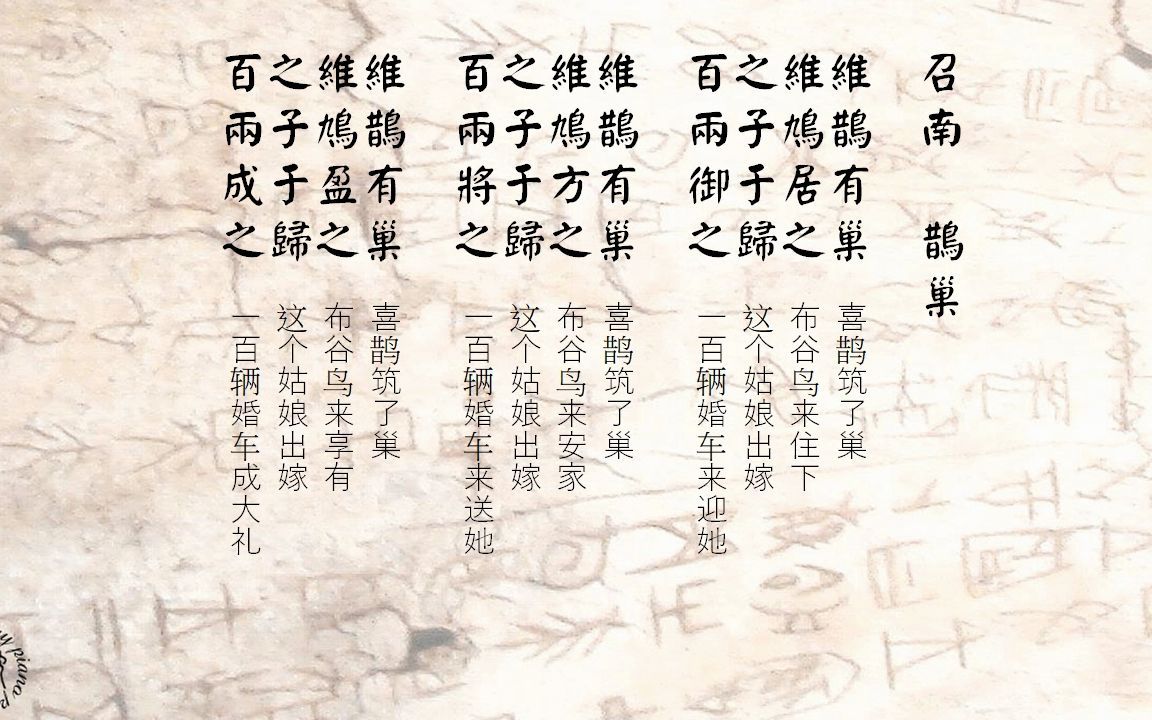 召南 鵲巢
維鵲有巢
維鳩居之
之子于歸
百兩御之
喜鹊筑了巢
布谷鸟来住下
这个姑娘出嫁
一百辆婚车来迎她
維鵲有巢
維鳩方之
之子于歸
百兩將之
喜鹊筑了巢
布谷鸟来安家
这个姑娘出嫁
一百辆婚车来送她
維鵲有巢
維鳩盈之
之子于歸
百兩成之
喜鹊筑了巢
布谷鸟来享有
这个姑娘出嫁
一百辆婚车成大礼
piano